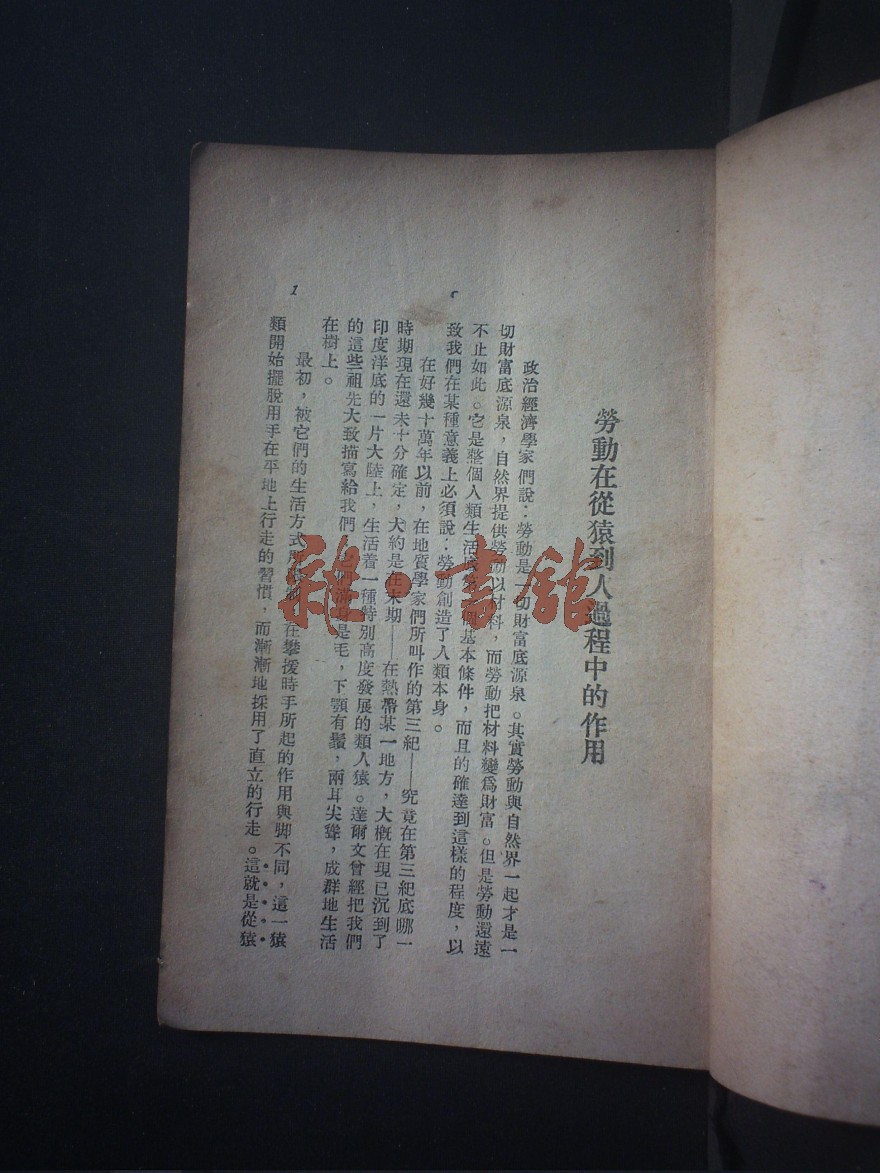 勞動在從猿到人過程中的作用
政治經濟學家們說：勞動是一切財富底源泉。其實勞動與自然界一起才是一
切財富底源泉，自然界提供勞動以材料，而勞動把材料變爲財富。但是勞動還遠
不止如此。它是整個人類生活底第一個基本條件，而且的確達到這樣的程度，以
致我們在某種意義上必須說：勞動創造了人類本身。
在好幾十萬年以前，在地質學家們所叫作的第三紀——究竟在第三紀底哪一
時期現在還未十分確定，大約是在末期——在熱帶某一地方，大概在現已沉到了
印度洋底的一片大陸上，生活着一種特別高度發展的類人猿。達爾文曾經把我們
的這些祖先大致描寫給我們 它們滿身是毛，下顎有鬚，兩耳尖聳，成群地生活
在樹上。
最初，被它們的生活方式所 在攀援時手所起的作用與脚不同，這一猿
類開始擺脫用手在平地上行走的習慣，而漸漸地採用了直立的行走。這就是從猿
1
雜·書館